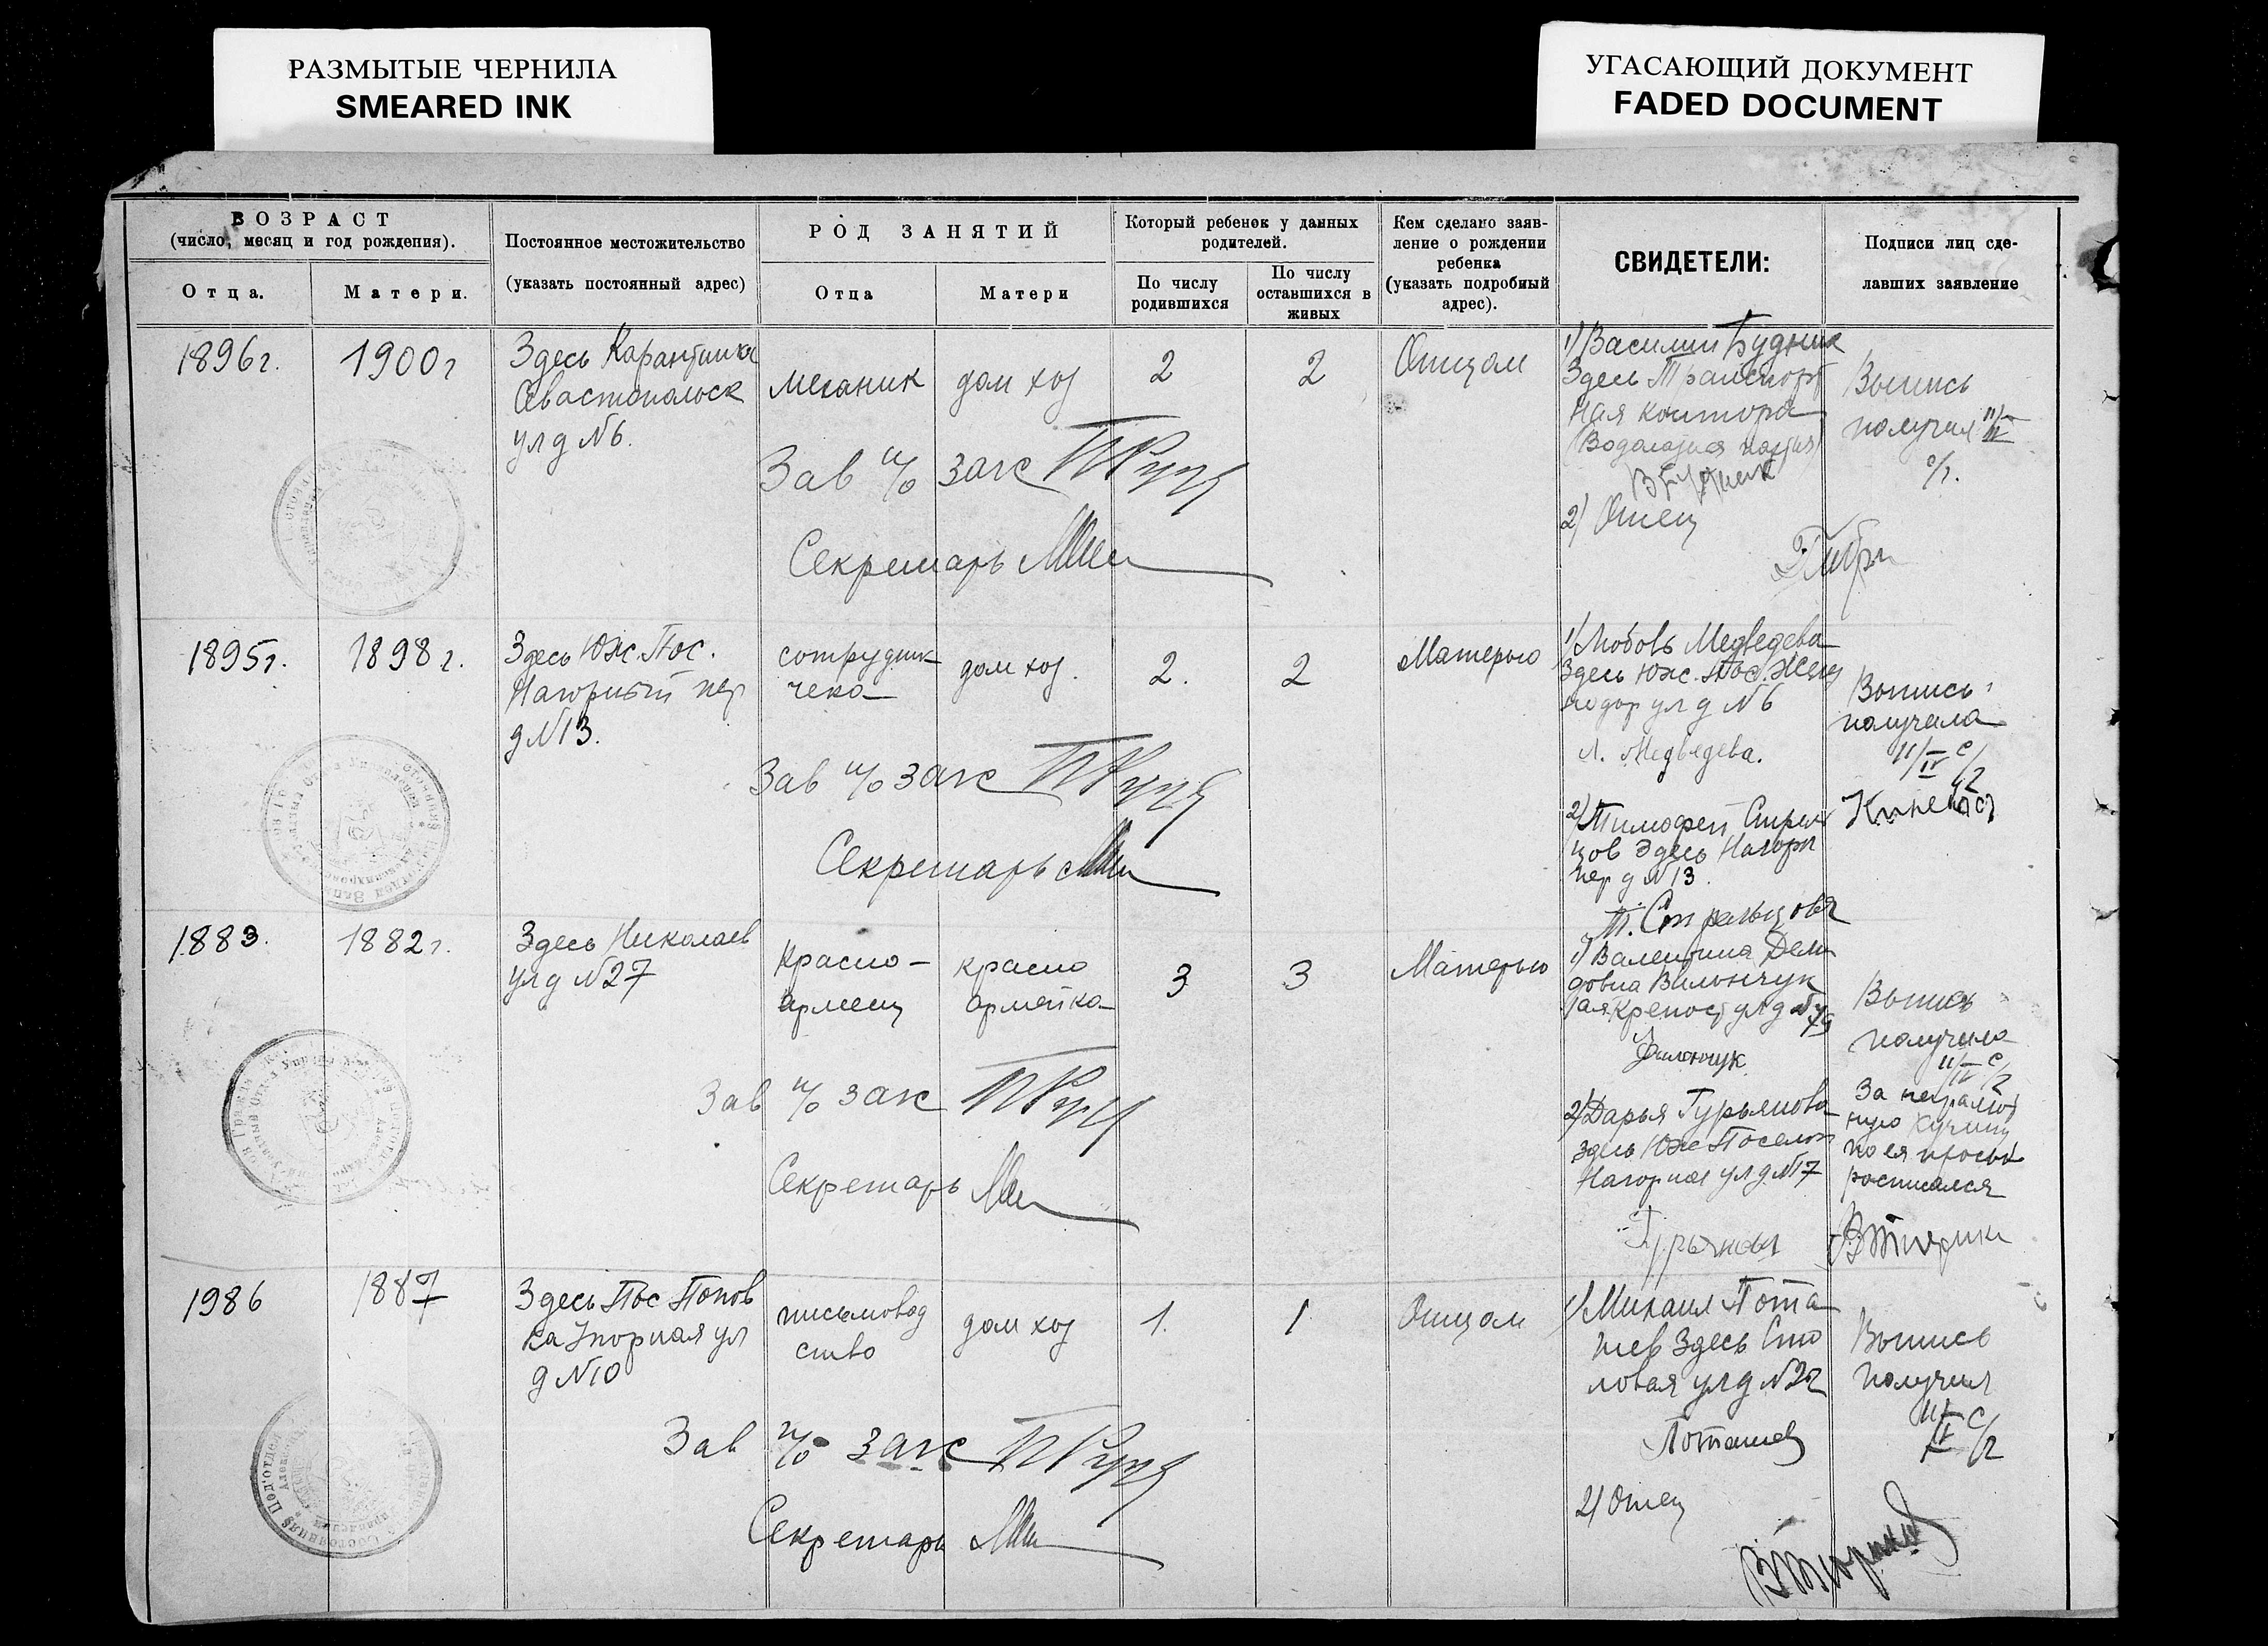 РАЗМЫТЫЕ ЧЕРНИЛА
SMEARED INK
УГАСАЮЩИЙ ДОКУМЕНТ
FADED DOCUMENT
ВОЗРАСТ
(число, месяц и год рождения).
Отца.
Матери.
Постоянное местожительство
(указать постоянный адрес)
РОД ЗАНЯТИЙ
Отца
Матери
Который ребенок у данных
родителей.
По числу
родившихся
По числу
оставшихся в
живых
Кем сделано заяв-
ление о рождении
ребенка
(указать подробный
адрес).
СВИДЕТЕЛИ:
Подписи лиц сде-
лавших заявление
1896 г.
1900 г
Здесь Карантинка
Севастопольск
ул д №6.
механик
дом хоз
2
2
Отцом
1) Василий Будник
Здесь Транспорт
ная контора
2) Отец
Выпись
получил
Зав п/о загс
Секретарь
1895 г.
1898 г.
Здесь Юж. Пос.
Нагорный пер
д №13.
сотрудник
чека
дом хоз.
2.
2
Матерью
1) Любовь Медведева
Здесь Юж. Пос. Желез
нодор ул д №6
Л. Медведева.
2) Тимофей Стрель
цов Здесь Нагорн
пер д №13.
Т. Стрельцова
Выпись
получила
Зав п/о загс
Секретарь
1883.
1882 г.
Здесь Николаев
ул д №27
Красно-
армеец
красно
армейка
3
3
Матерью
1) Валентина Деми
довна Вилончук
Вилончук
2) Дарья Гурьянова
Здесь Юж Поселок
Нагорная ул д №17
Выпись
получила
За неграмот
ную
по ея просьб
росписался
Зав п/о загс
Секретарь
1986
1887
Здесь Пос Попов
ка Нагорная ул
д №10
письмовод
ство
дом хоз
1.
1
Отцом
1) Михаил Пота
шев Здесь Сто
ловая ул д №22
Поташев
2) Отец
Выпись
получил
Зав п/о загс
Секретарь